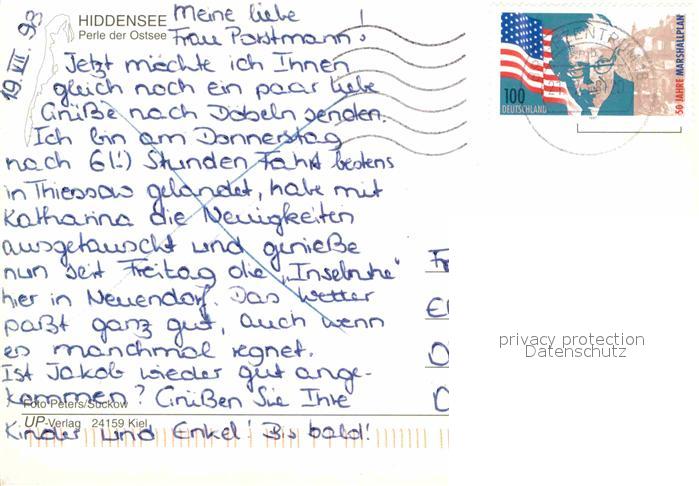 HIDDENSEE
Perle der Ostsee
19.VII.98
Meine liebe
Frau Porstmann!
Jetzt möchte ich Ihnen
gleich noch ein paar liebe
Grüße nach Döbeln senden.
Ich bin am Donnerstag
nach 6(!) Stunden Fahrt bestens
in Thiessow gelandet, habe mit
Katharina die Neuigkeiten
ausgetauscht und genieße
nun seit Freitag die „Inselruhe“
hier in Neuendorf. Das Wetter
paßt ganz gut, auch wenn
es manchmal regnet.
Ist Jakob wieder gut ange-
kommen? Grüßen Sie Ihre
Kinder und Enkel! Bis bald!
Foto Peters/Suckow
UP-Verlag 24159 Kiel
100
DEUTSCHLAND
50 JAHRE MARSHALLPLAN
privacy protection
Datenschutz